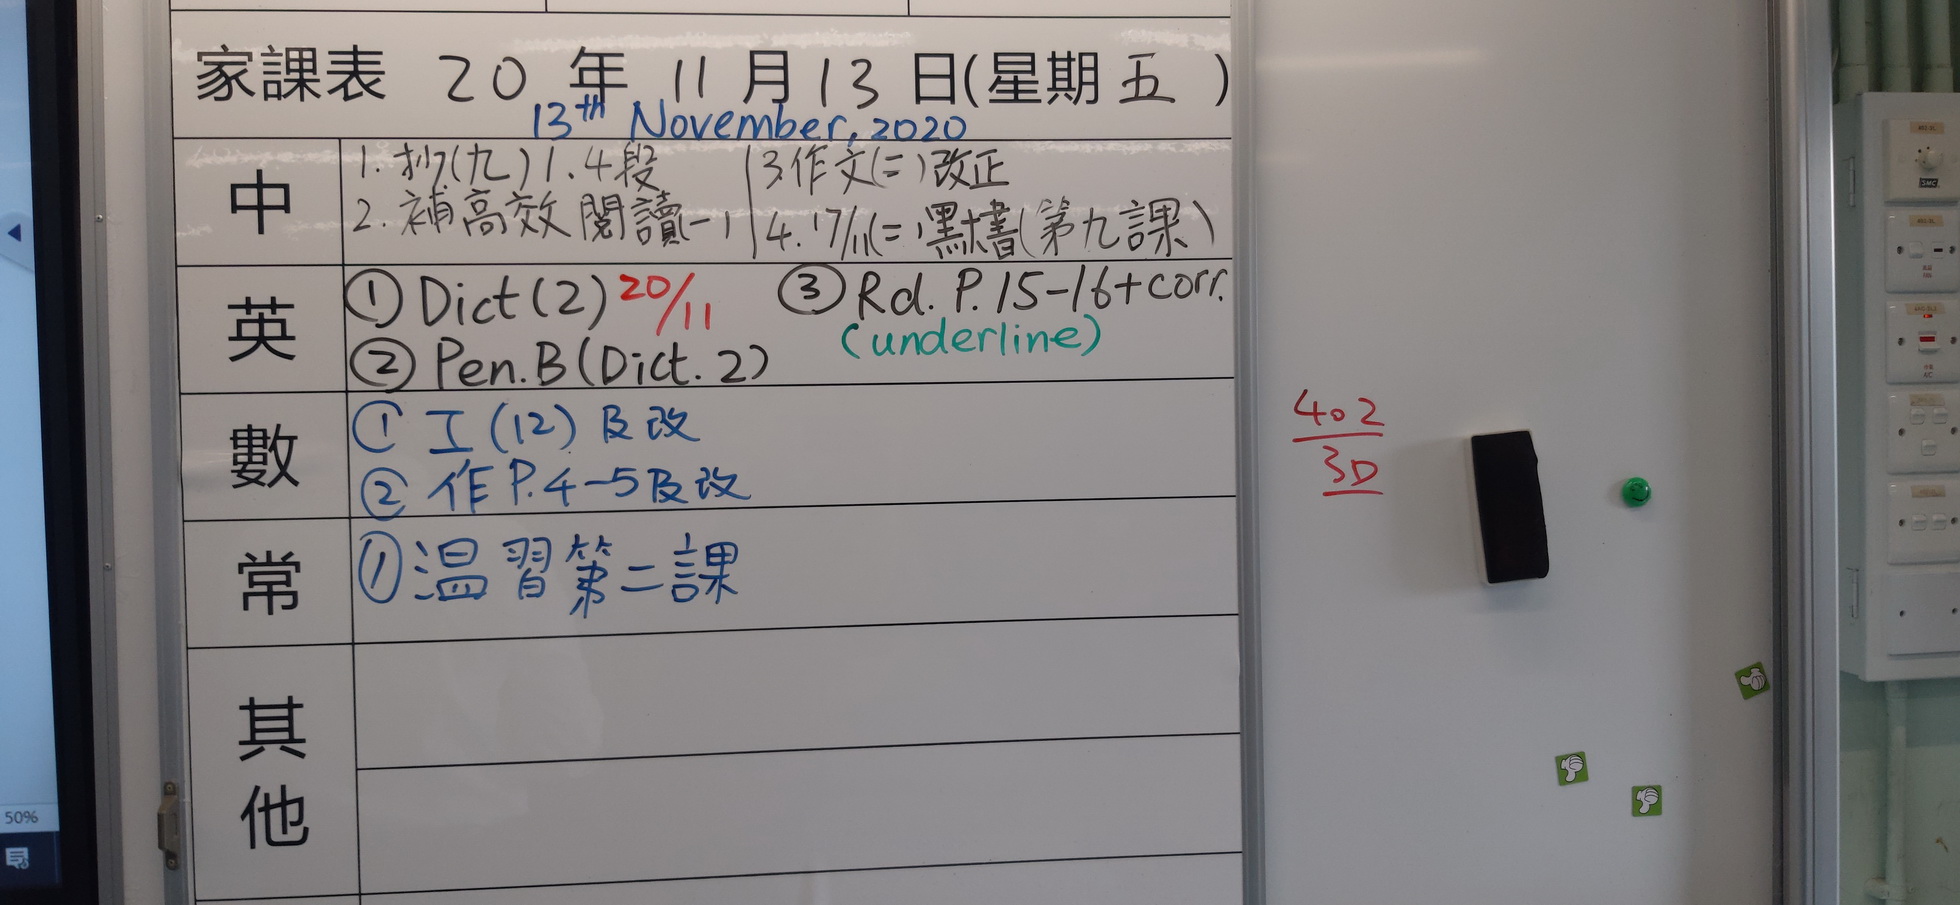 家課表 20 年 11 月 13 日(星期五)
13th November, 2020
中
1. 抄(九)1.4段
2. 補高效閱讀(一)
3.作文(二)改正
4. 17/11(二)默書(第九課)
英
① Dict(2) 20/11
② Pen.B(Dict. 2)
③ Rd. P.15-16+corr.
(underline)
數
① 工(12)及改
② 作P.4-5及改
常
① 温習第二課
其他
402
3D
50%